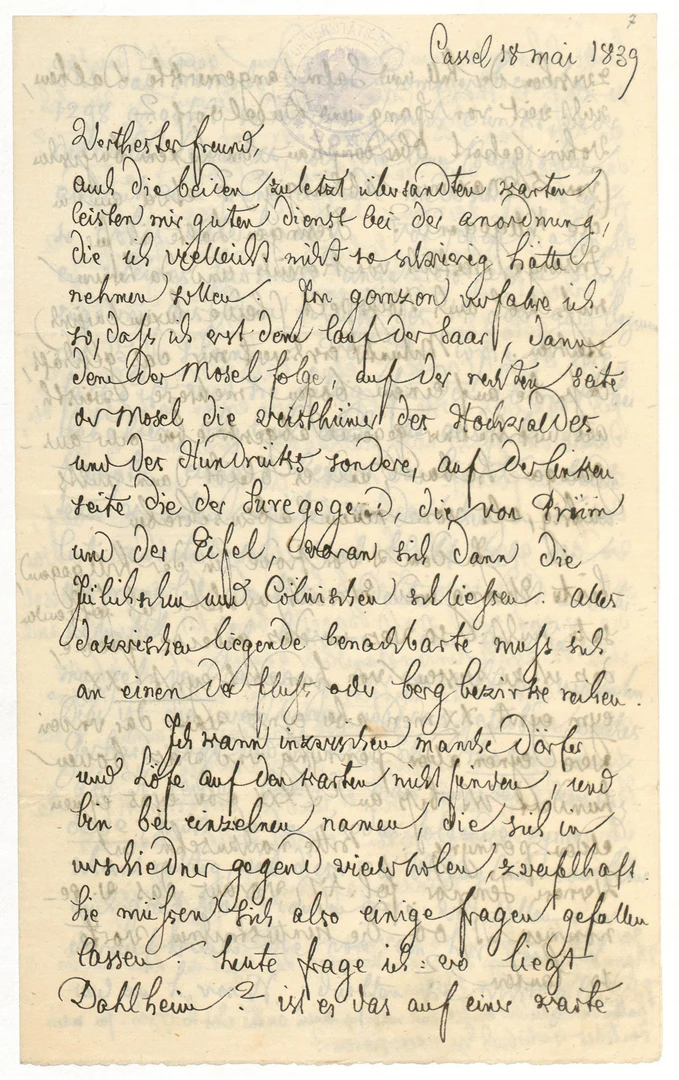 7
Cassel 18 mai 1839
Werthester freund,
auch die beiden zuletzt übersandten karten
leisten mir guten dienst bei der anordnung,
die ich vielleicht nicht so schwierig hätte
nehmen sollen. Im ganzen verfahre ich
so, daſs ich erst dem lauf der Saar, dann
dem der Mosel folge, auf der rechten seite
der Mosel die weisthümer des Hochwaldes
und des Hundrücks sondere, auf der linken
seite die der Suregegend, die von Prüm
und der Eifel, woran sich dann die
Jülichschen und Cölnischen schliessen. alles
dazwischen liegende benachbarte muſs sich
an einen der fluſs oder bergbezirke reihen.
Ich kann inzwischen manche dörfer
und höfe auf den karten nicht finden, und
bin bei einzelnen namen, die sich in
verschiedner gegend wiederholen, zweifelhaft.
Sie müssen sich also einige fragen gefallen
lassen. heute frage ich: wo liegt
Dahlheim? ist es das auf einer karte